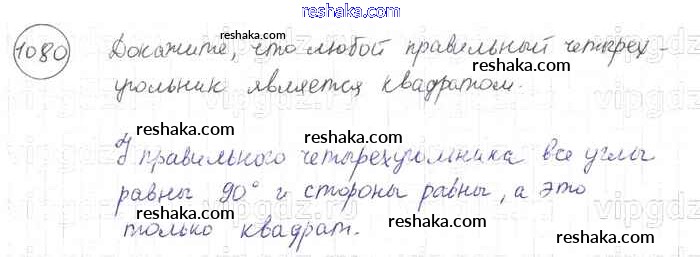 reshaka.com
1080 Докажите, что любой правильный четырех-
reshaka.com
угольник является квадратом.
reshaka.com
reshaka.com
У правильного четырехугольника все углы
reshaka.com
равны 90° и стороны равны, а это
reshaka.com
только квадрат.
reshaka.com